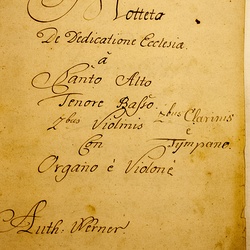 Motteto
De Dedicatione Ecclesia.
â
Canto Alto
Tenore Basso
2bus Violinis 2bus Clarinis
Con e Tympano.
Organo è Violone
Auth. Werner.